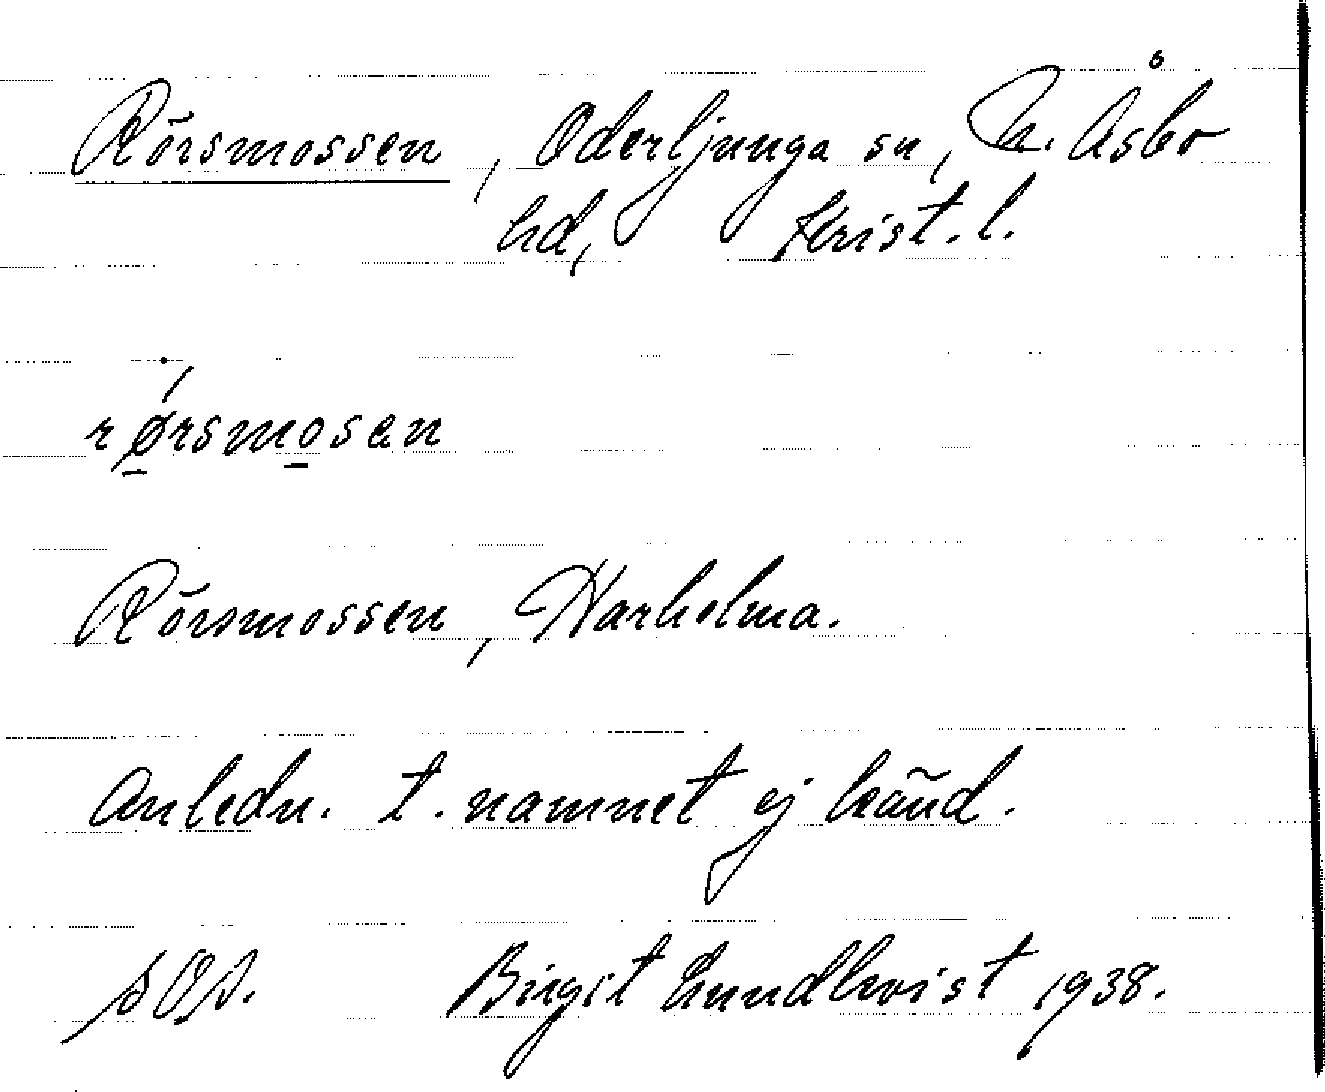 Rörsmossen, Oderljunga sn, N. Åsbo
hd, Krist. l.
rørsmosen
Rörsmossen, Harholma.
Anledn. t. namnet ej känd.
Birgit Lundkvist 1938.